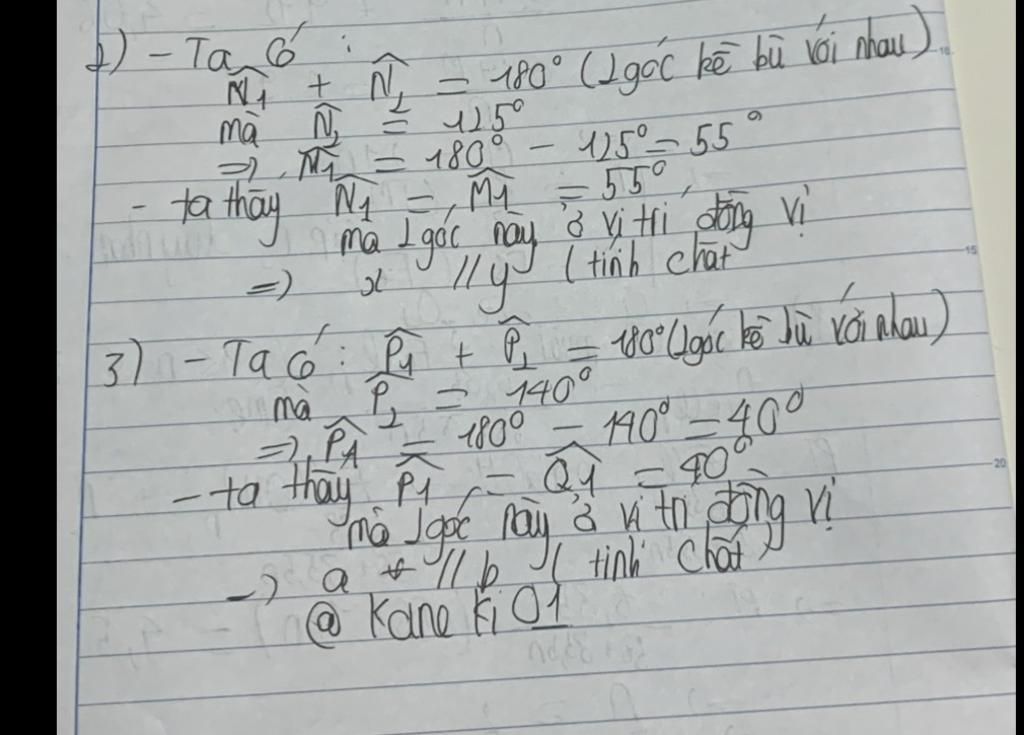 2) - Ta có :
N̂1 + N̂2 = 180° (2 góc kề bù với nhau)
mà N̂2 = 125°
=> N̂1 = 180° - 125° = 55°
- ta thấy N̂1 = M̂1 = 55°
mà 2 góc này ở vị trí đồng vị
=> x // y ( tính chất
3) - Ta có : P̂1 + P̂2 = 180° (2 góc kề bù với nhau)
mà P̂2 = 140°
=> P̂1 = 180° - 140° = 40°
- ta thấy P̂1 = Q̂1 = 40°
mà 2 góc này ở vị trí đồng vị
=> a // b ( tính chất )
@ Kane ki 01
15
20